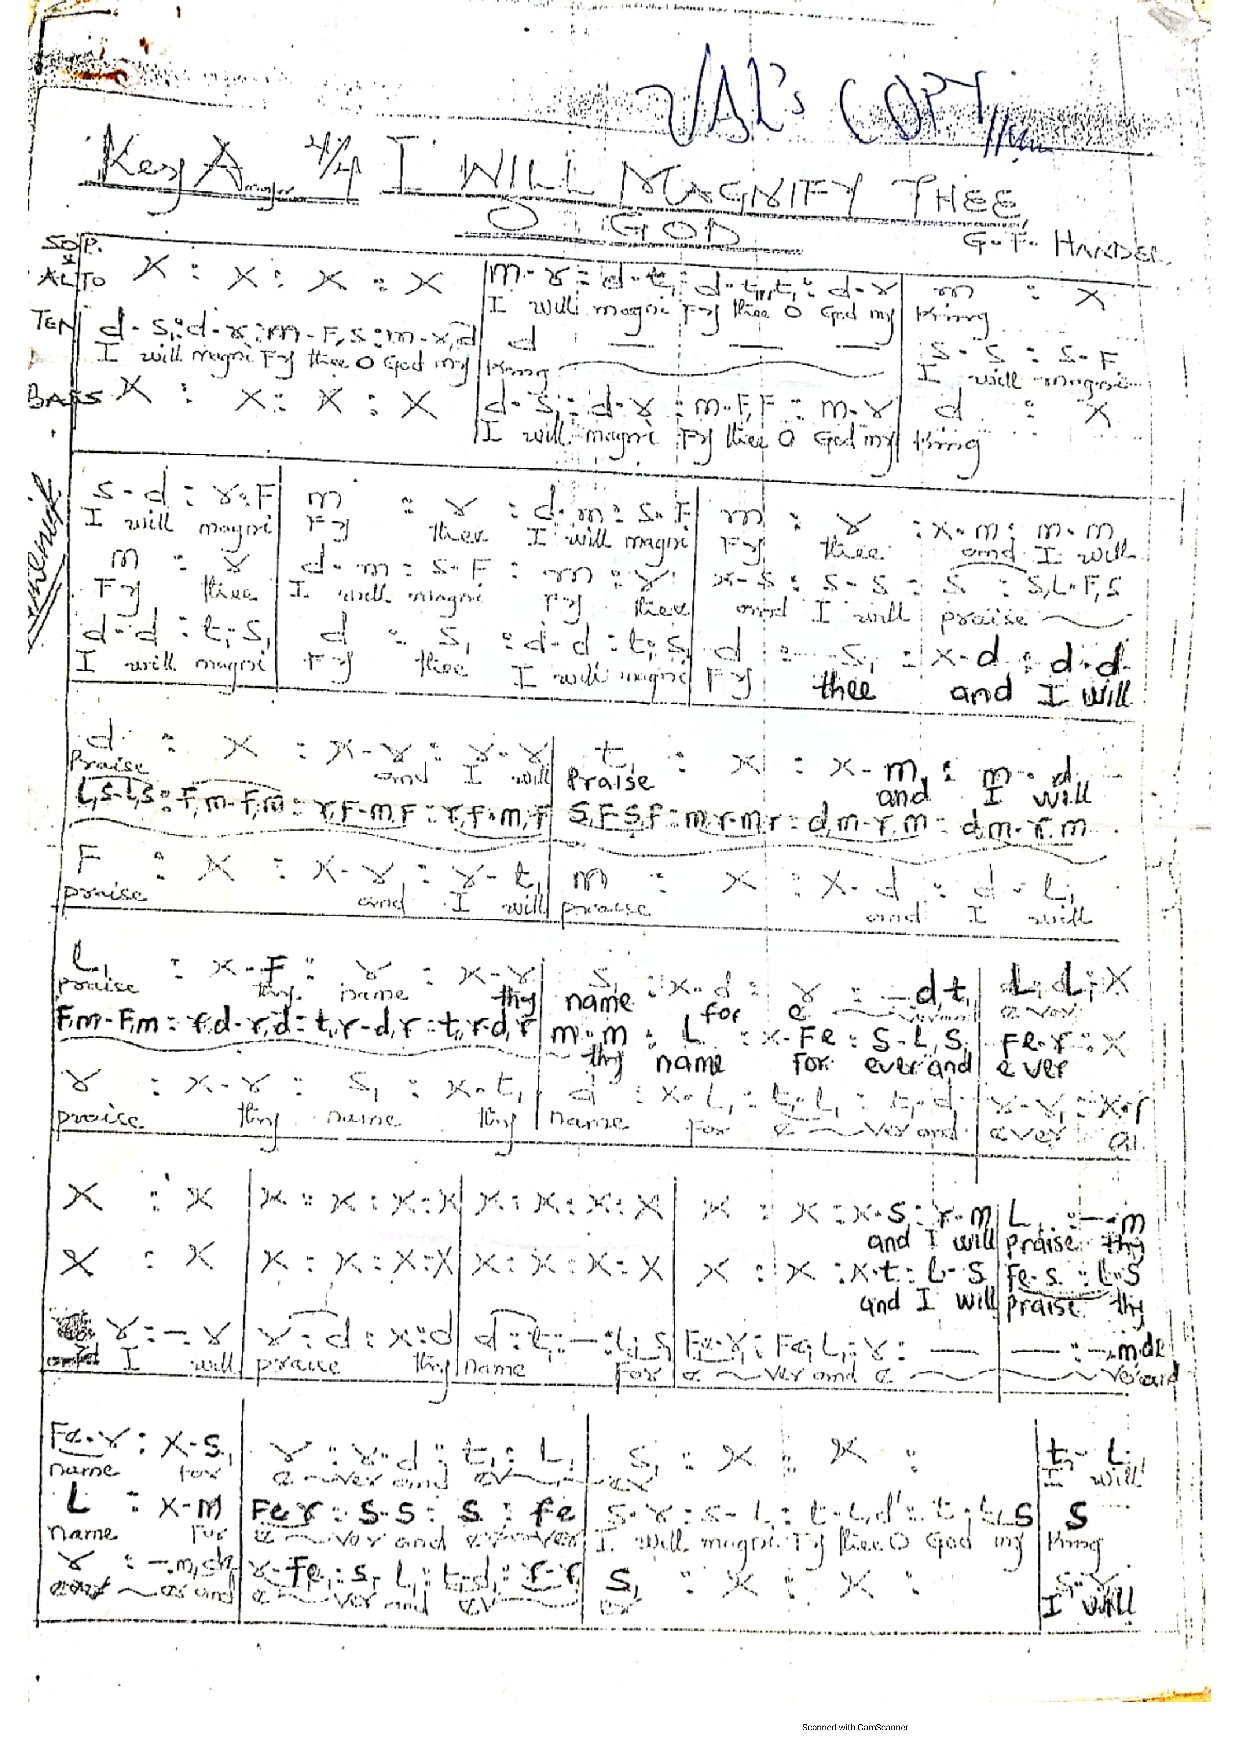 VAL's COPY
Key A major 4/4 I WILL MAGNIFY THEE
O GOD
G.F. HANDEL
SOP.
ALTO X : X : X : X | m . r : d . t, : d . t, t, : d . r | m : X
I will magni Fy thee O God my King
TEN d . s, : d . r : m . F, S : m . r, d | d — — — | S . S : S . F
I will magni Fy thee O God my King I will magni
BASS X : X : X : X | d . S, : d . r : m . F, F : m . r | d : X
I will magni Fy thee O God my King
S . d : r . F | m : r : d . m : S . F | m : r : x . m : m . m
I will magni Fy thee I will magni Fy thee and I will
m : r | d . m : S . F : m : r | x . s : s . s : s : s, L . F, s
Fy thee I will magni Fy thee and I will praise
d . d : t, . S, | d : S, : d . d : t, . S, | d : S, : x . d : d . d
I will magni Fy thee I will magni Fy thee and I will
d : X : X . r : r . r | t, : X : X . m, : m . d
Praise and I will Praise and I will
L, s . L, s : F, m . F, m : r, F . m, F : r, F . m, F | S, F . S, F : m, r . m, r : d, m . r, m : d, m . r, m
F : X : X . r : r . t, | m : X : X . d : d . L,
praise and I will praise and I will
L, : x . F : r : x . r | S, : x . d : r : — . d, t, | L, . L, : X
praise thy name thy name for e ever
F, m . F, m : r, d . r, d : t, r . d, r : t, r . d, r | m . m : L : x . Fe : S . L, S | Fe . r : X
thy name For ever and ever
r : x . r : S, : x . t, | d : x . L, : t, . L, : t, . d | r . r, : X . r
praise thy name thy name for e ver and ever
X : X | X : X : X : X | X : X : X : X | X : X : X . S : r . m | L, : — . m
and I will praise thy
X : X | X : X : X : X | X : X : X : X | X : X : X . t : L . S | Fe . s : L . S
and I will praise thy
r : — . r | r : d : x : d | d : t, : — : L, . S | Fe . r : Fe, L, : r : — | — : — . m d
and I will praise thy name For e ver and e
Fe . r : X . S, | r : r . d : t, : L, | S, : X : X : | t, . L,
name for e ver and ev er I will
L : x . m | Fe r : S . S : S : fe | S . r : s . L : t . L, d' : t . t, S | S
name for e ver and ever I will magni Fy thee O God my King
r : — . m, d | r . Fe, : s, . L, : t, . d, : r . r, | S, : X : X : | S . r
e ver and ev er I will
Scanned with CamScanner